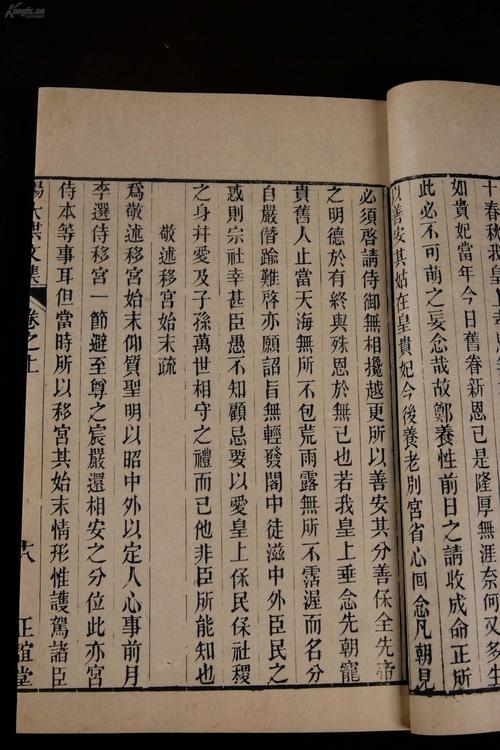 十春秋我皇
如貴妃當年今日舊眷新恩已是隆厚無涯奈何又多生
此必不可萌之妄念哉故鄭養性前日之請收成命正所
以善安其姑在皇貴妃今後養老別宮省心回念凡朝見
必須啓請侍御無相攙越更所以善安其分善保全先帝
之明德於有終與殊恩於無已也若我皇上垂念先朝寵
貴舊人止當天海無所不包荒雨露無所不霑渥而名分
自嚴僭踰難啓亦願詔旨無輕發閣中徒滋中外臣民之
惑則宗社幸甚臣愚不知顧忌要以愛皇上保民保社稷
之身幷愛及子孫萬世相守之禮而已他非臣所能知也
敬述移宮始末疏
爲敬述移宮始末仰質聖明以昭中外以定人心事前月
李選侍移宮一節避至尊之宸嚴還相安之分位此亦宮
侍本等事耳但當時所以移宮其始末情形惟護駕諸臣
楊大洪文集 卷之上 十八 正誼堂
Kongfz.cn